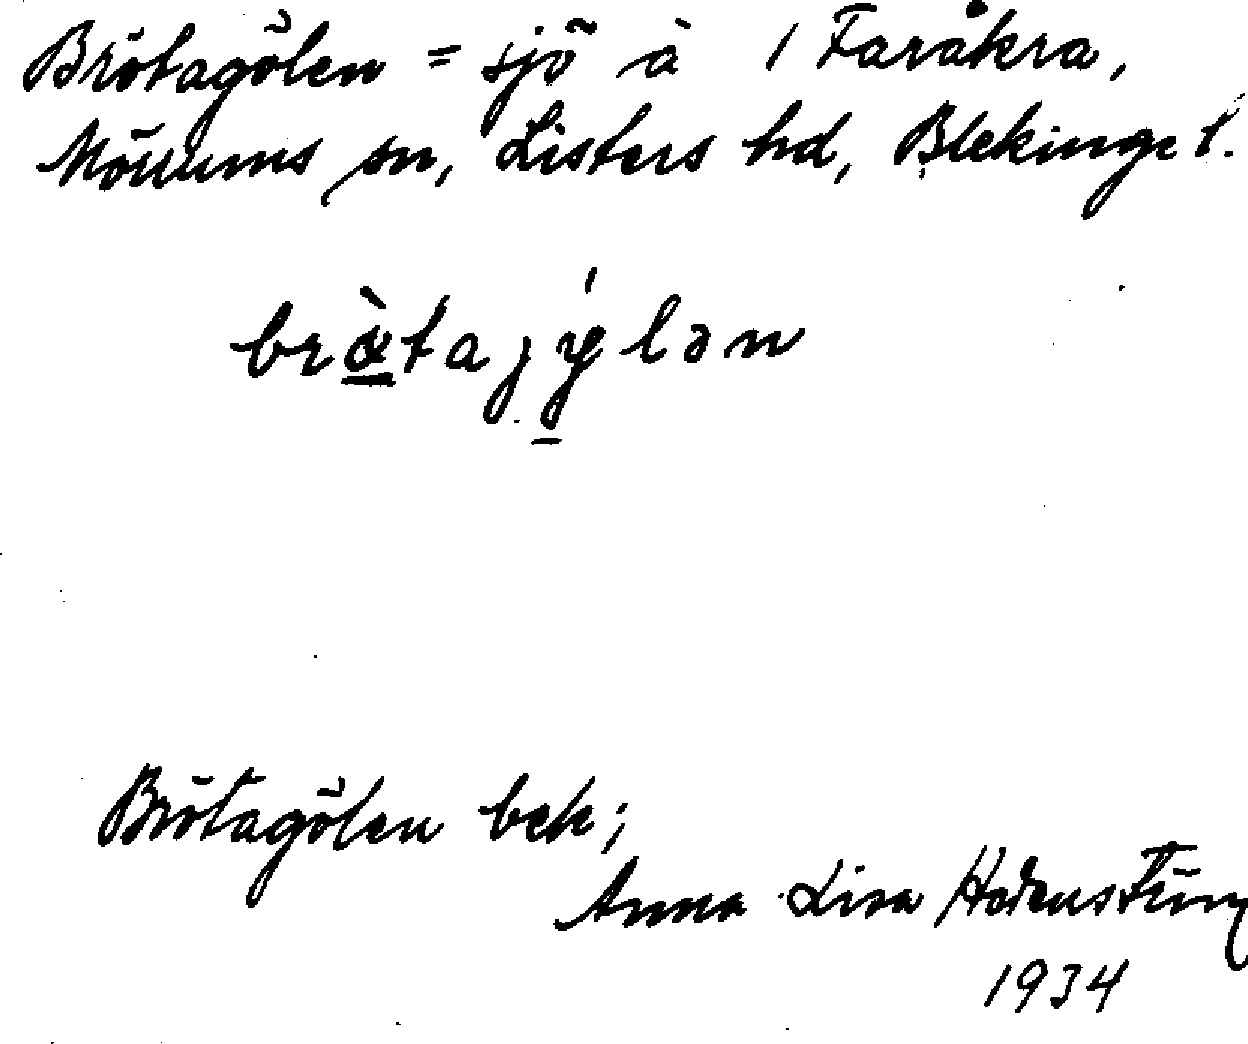 Brötagölen = sjö å 1 Faråkra,
Mörrums sn, Listers hd, Blekinge l.
Brötagölen bek;
Anna Lisa
1934